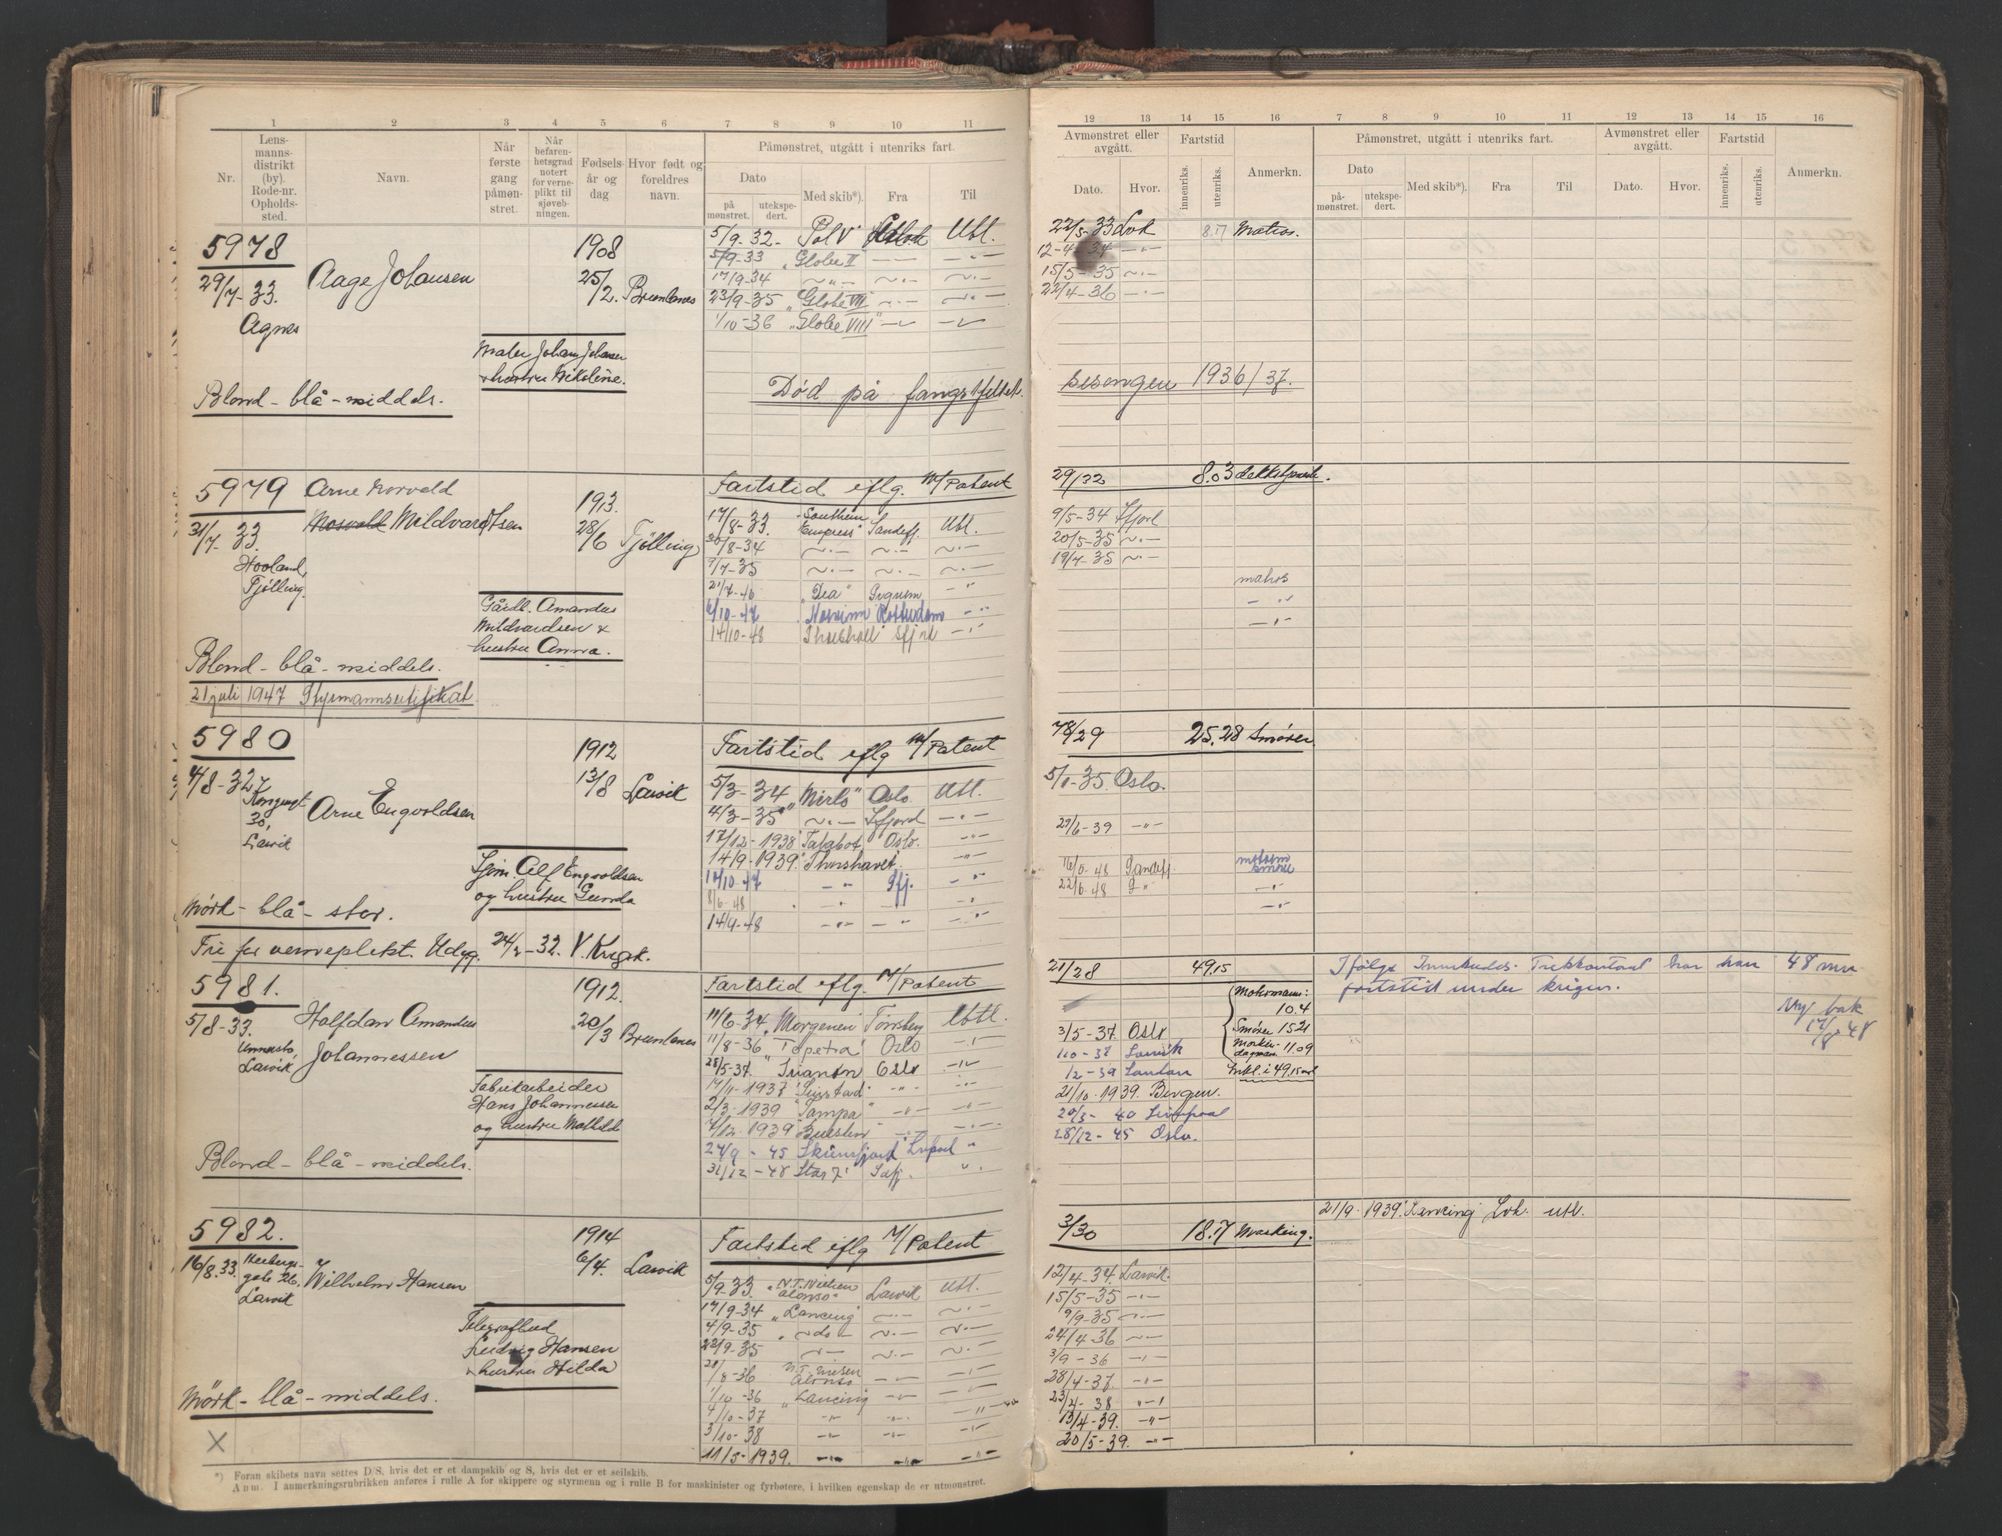 1 2 3 4 5 6 7 8 9 10 11
Nr.
Lens-
manns-
distrikt
(by).
Rode-nr.
Opholds-
sted.
Navn.
Når
første
gang
påmøn-
stret.
Når
befaren-
hetsgrad
notert
for verne-
plikt til
sjøveb-
ningen.
Fødsels-
år og
dag
Hvor født og
foreldres
navn.
Påmønstret, utgått i utenriks fart.
Dato
på
mønstret.
utekspe-
dert.
Med skib*).
Fra
Til
5978
29/7-33.
Agnes
Aage Johansen
1908
25/2.
Brunlanes
Maler Johan Johansen
hustru Nikoline.
Blond - blå - middels.
5/9-32 - Pol V Utl.
5/9-33 "Globe II — —
17/9-34
23/9-35 "Globe VII
1/10-36 "Globe VIII"
Død på fangstfeltet
5979
31/7-33
Tjølling.
Arne Norvald
Mildvardtsen
1913
28/6
Tjølling
Gårdb. Amandus
Mildvardsen &
hustru Anna.
Blond - blå - middels.
21 juli 1947
Fartstid eflg. M/Patent
17/8-33 "Southern Empress" Sandefj. Utl.
30/8-34
7/7-35
21/7-46
6/10-47 Rotterdam
14/10-48 Thorshall Sfjord
5980
4/8-32
30,
Larvik
Arne Engvoldsen
1912
13/8
Larvik
Alf Engvoldsen
og hustru Gunda
Mørk - blå - stor.
Fri for verneplikt. Udyg. 24/2-32. V. Krigsk.
Fartstid eflg M/Patent
5/3-34 "Mirlo" Oslo Utl.
4/3-35 Sfjord
17/12-1938 Talabot Oslo.
14/9-1939 Thorshavet
14/10-47 Sfj.
8/6-48
14/9-48
5981.
5/8-33.
Larvik
Halfdan Amandus
Johannessen
1912.
20/3
Brunlanes
Fabrikarbeider
Hans Johannessen
og hustru Mathild
Blond - blå - middels.
Fartstid eflg. M/Patent
11/6-34 Morgenen Tønsberg Utl.
11/8-36 "Topeka" Oslo
28/5-37. Trianon Oslo
14/11-1937
2/3-1939 "Tampa"
7/12-1939
24/9-45
31/12-48 Star
5982.
16/8.33.
gate 26.
Larvik
Wilhelm Hansen
1914
6/4.
Larvik
Telegrafbud
Ludvig Hansen
hustru Hilda
Mørk - blå - middels.
X
Fartstid eflg M/Patent
5/9-33. "N.T. Nielsen Alonso" Larvik Utl.
17/9-34 "Lancing"
4/9-35 do
22/9-35
20/8-36 N.T. Nielsen Alonso
1/10-36 "Lancing
4/10-37
3/10-38
11/5-1939.
*) Foran skibets navn settes D/S, hvis det er et dampskib og S, hvis det er et seilskib.
Anm. I anmerkningsrubrikken anføres i rulle A for skippere og styrmenn og i rulle B for maskinister og fyrbøtere, i hvilken egenskap de er utmønstret.
12 13 14 15 16 7 8 9 10 11 12 13 14 15 16
Avmønstret eller
avgått.
Dato.
Hvor.
Fartstid
innenriks.
utenriks.
Anmerkn.
Påmønstret, utgått i utenriks fart.
Dato
på-
mønstret.
utekspe-
dert.
Med skib*).
Fra
Til
Avmønstret eller
avgått.
Dato.
Hvor.
Fartstid
innenriks.
utenriks.
Anmerkn.
22/5-33 Lvk 8.7 Matros.
12-4-34
15/5-35
22/4-36
sesongen 1936/37.
29/32 8.03
9/5-34 Sfjord
20/5-35
19/7-35
matros
78/29 25.28 Smører
5/1-35 Oslo.
29/6-39
16/5-48 Sandefj.
22/6-48
motorm
smører
21/28 49.15
Motormann:
10.4
Smører 15.21
11.09
Inkl. i 49.15
3/5-37 Oslo
1/10-37 Larvik
1/2-39 London
21/10-1939. Bergen.
20/3-40 Liverpool
28/12-45 Oslo.
Ifølge Innenlands. Trekkontoret har han 48 mn
fartstid under krigen.
Ny bok
17/8-48
3/30 18.17 Masking.
21/9-1939. Lancing Lvk. utl.
12/4-34. Larvik.
15/5-35
9/9-35
24/4-36
3/9-36
28/4-37.
23/4-38
13/4-39.
20/5-39.